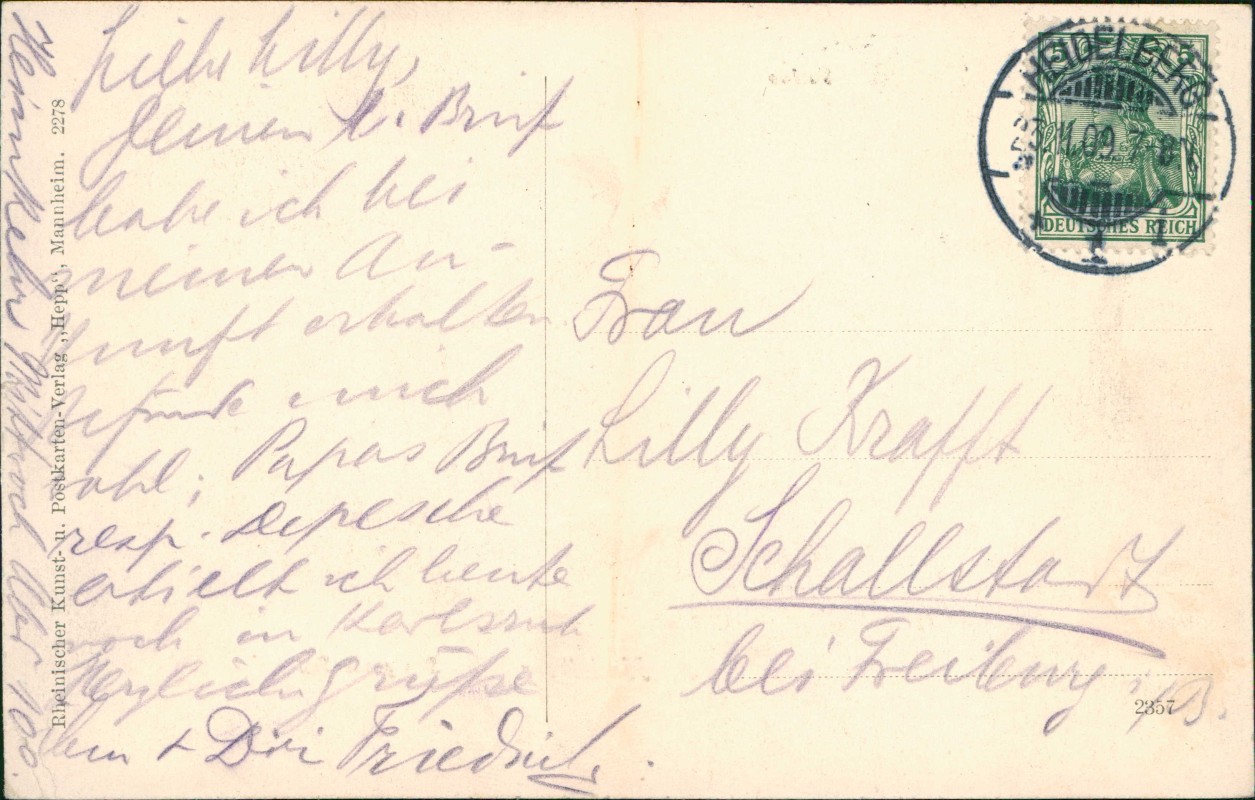 Liebe Lilly,
Deinen l. Brief
habe ich bei
meiner An-
kunft erhalten
befinde mich
wohl; Papas Brief
resp. Depesche
erhielt ich heute
noch in Karlsruh
Herzliche Grüße
Friedrich.
Heimkehr Mittwoch Uhr 100.
Rheinischer Kunst- u. Postkarten-Verlag „Hepp“, Mannheim. 2278
HEIDELBERG
23.11.09. 7-8 N
1
DEUTSCHES REICH
Frau
Lilly Krafft
Schallstadt
bei Freiburg i/B.
2357